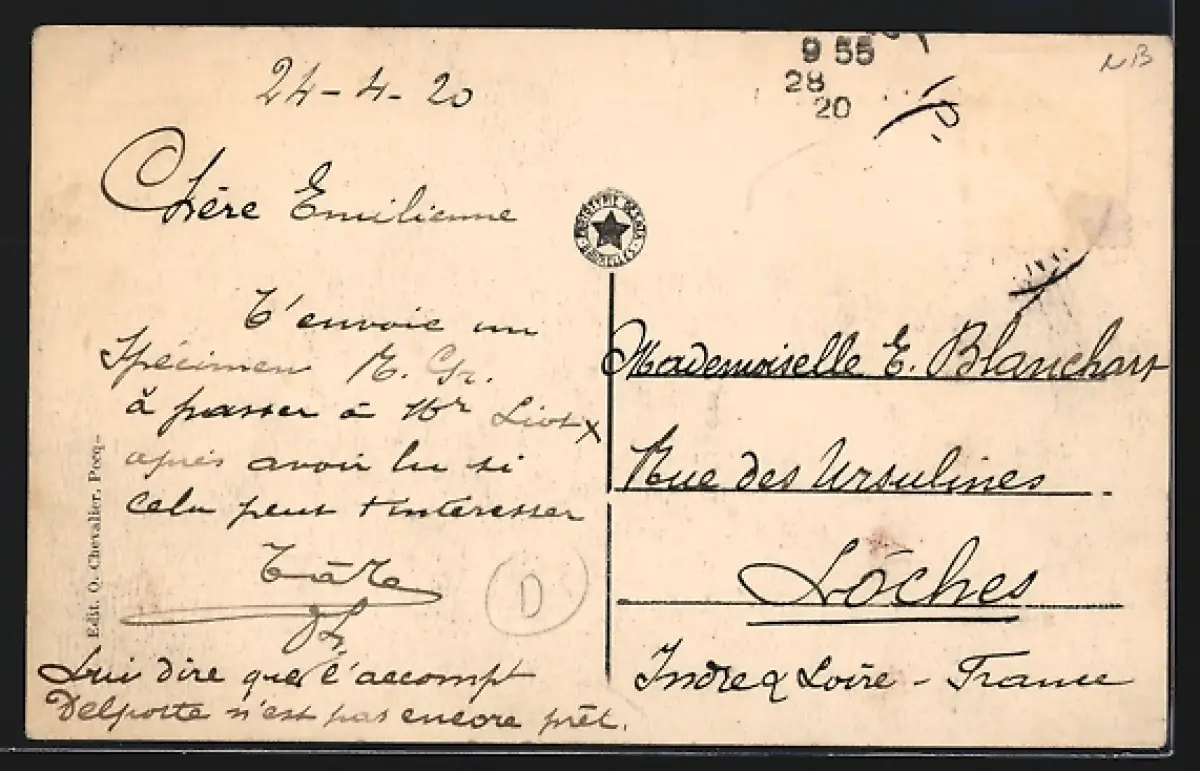 24-4-20
Chère Emilienne
T'envoie un
Spécimen
à passer à Mr
après avoir lu si
cela peut t'interesser
Lui dire que l'accompt
Delporte n'est pas encore prêt.
Edit. O. Chevalier, Pecq
D
9 55
28
20
NB
BRUXELLES
Mademoiselle E. Blanchart
Rue des Ursulines
Loches
Indre & Loire - France